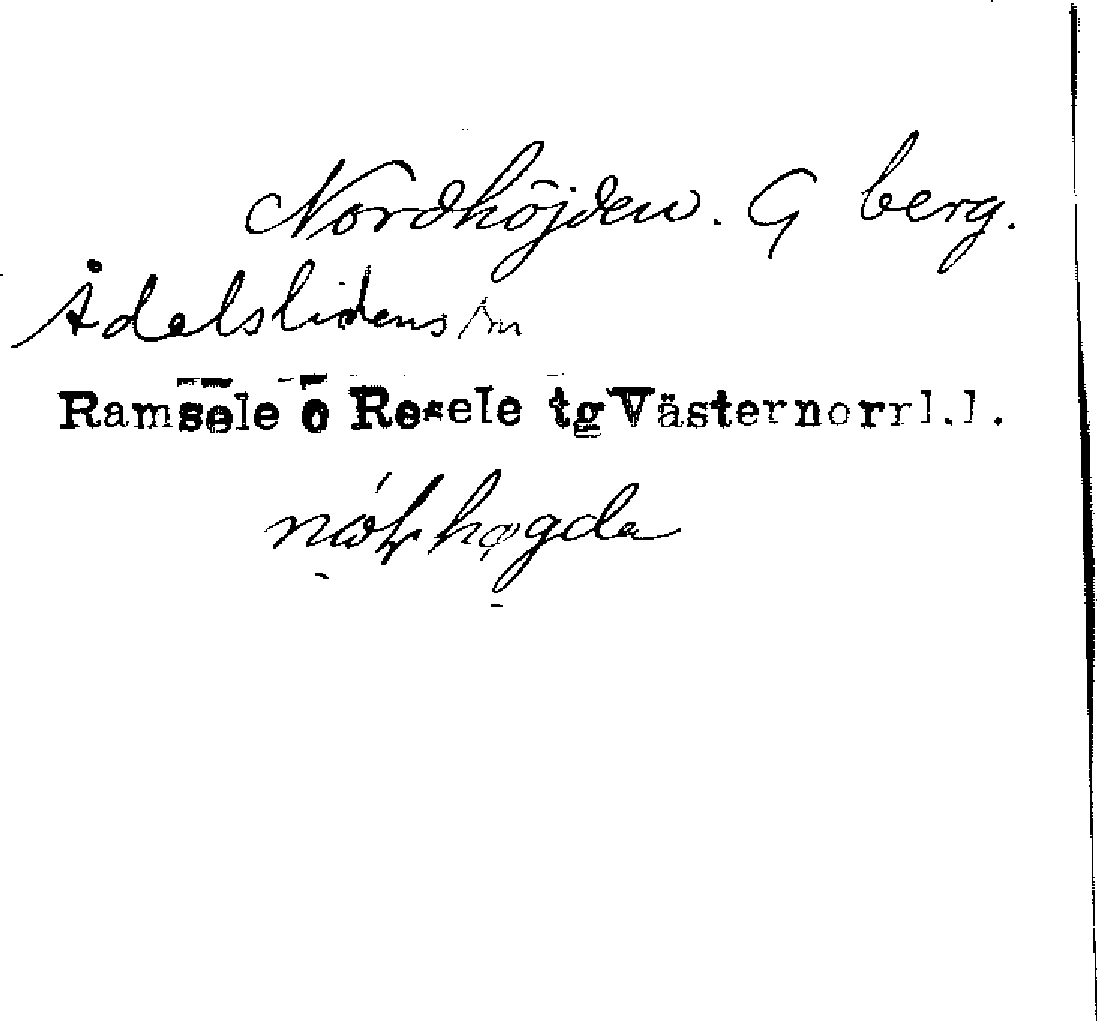 Nordhöjden. G berg.
Ådalslidens sn
Ramsele o Resele tg Västernorrl.l.